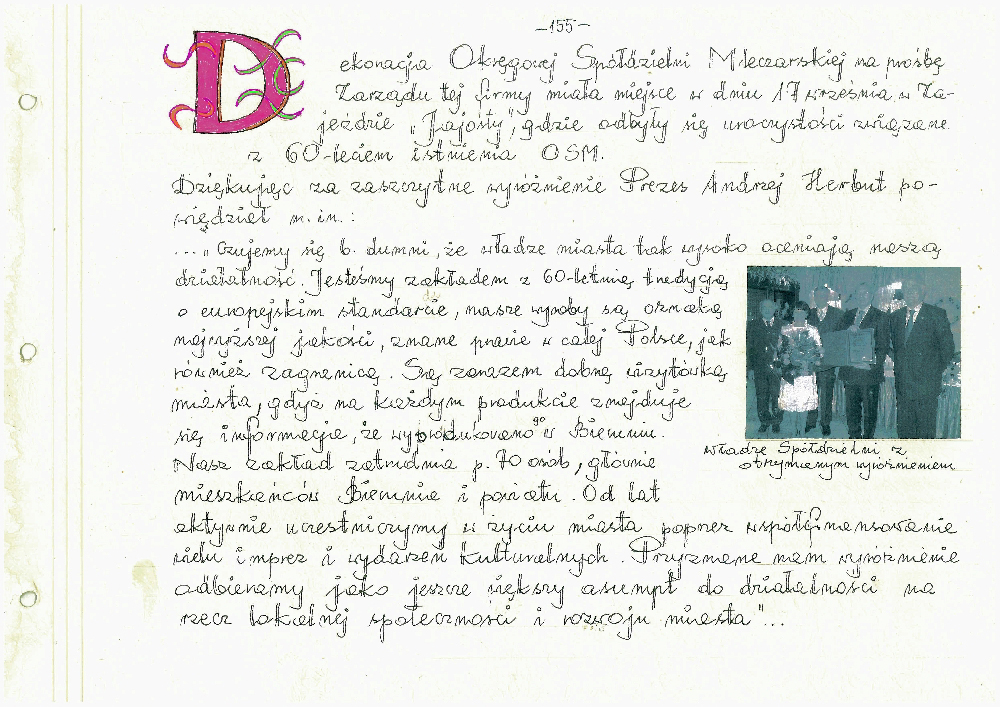 -155-
Dekoracja Okręgowej Spółdzielni Mleczarskiej na prośbę
Zarządu tej firmy miała miejsce w dniu 17 września w Za-
jeździe „Jajosty", gdzie odbyły się uroczystości związane
z 60-leciem istnienia OSM.
Dziękując za zaszczytne wyróżnienie Prezes Andrzej Herbut po-
wiedział m.in.:
..."Czujemy się b. dumni, że władze miasta tak wysoko oceniają naszą
działalność. Jesteśmy zakładem z 60-letnią tradycją
o europejskim standarcie, nasze wyroby są oznaką
najwyższej jakości, znane prawie w całej Polsce, jak
również zagranicą. Są zarazem dobrą wizytówką
miasta, gdyż na każdym produkcie znajduje
się informacja, że wyprodukowano go w Bieruniu.
Nasz zakład zatrudnia p. 70 osób, głównie
mieszkańców Bierunia i powiatu. Od lat
aktywnie uczestniczymy w życiu miasta poprzez współfinansowanie
wielu imprez i wydarzeń kulturalnych. Przyznane nam wyróżnienie
odbieramy jako jeszcze większy asumpt do działalności na
rzecz lokalnej społeczności i rozwoju miasta"...
władze Spółdzielni z
otrzymanym wyróżnieniem